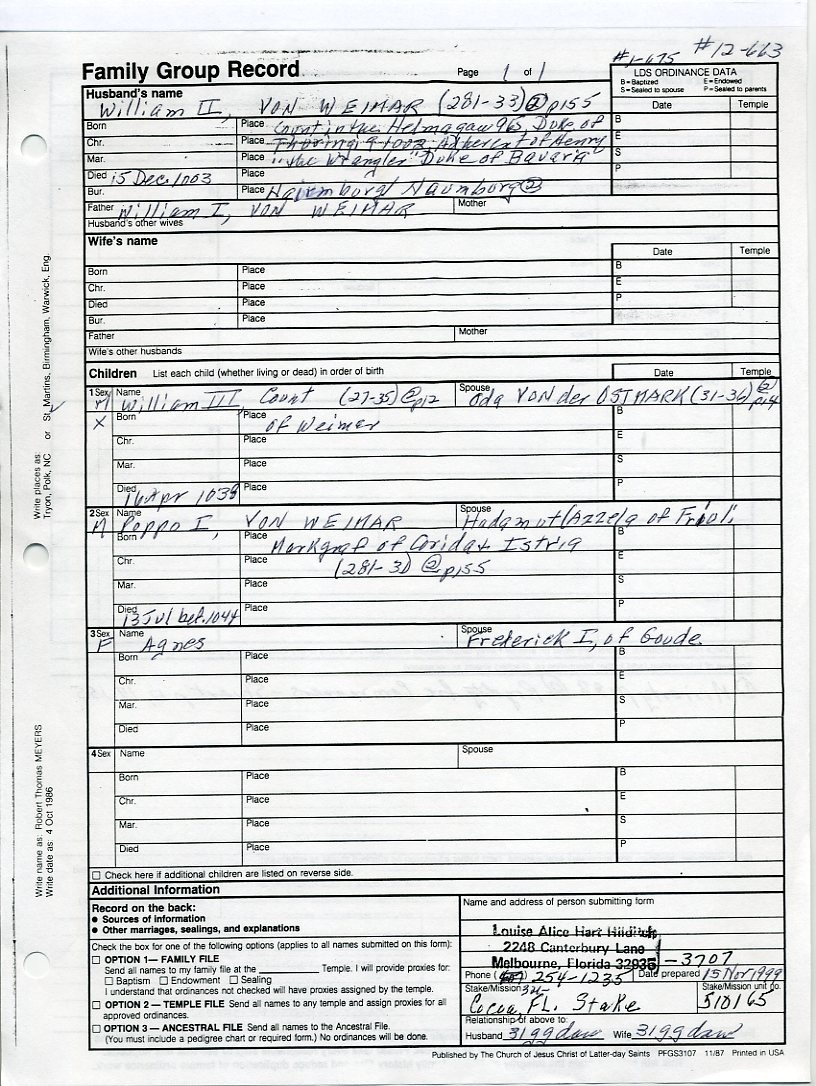 #1-675 #12-663
Family Group Record
Page 1 of 1
LDS ORDINANCE DATA
B = Baptized E = Endowed
S = Sealed to spouse P = Sealed to parents
Husband's name
William II, VON WEIMAR (281-33) @ p155
Date Temple
Born Place Count in the Helmagau 965 Duke of B
Chr. Place Thuringia 1002 Adherent of Henry E
Mar. Place "the Wrangler" Duke of Bavaria S
Died 15 Dec. 1003 Place P
Bur. Place Naumburg
Father William I, VON WEIMAR Mother
Husband's other wives
Wife's name
Date Temple
Born Place B
Chr. Place E
Died Place P
Bur. Place
Father Mother
Wife's other husbands
Children List each child (whether living or dead) in order of birth Date Temple
1 Sex M Name William III, Count (27-35) @ p12 Spouse Oda VON der OSTMARK (31-36) @ p14
X Born Place of Weimar B
Chr. Place E
Mar. Place S
Died 16 Apr 1039 Place P
2 Sex M Name Poppo I, VON WEIMAR Spouse Hadamut (Azzela of Friuli
Born Place Markgraf of Istria B
Chr. Place (281-3) @ p155 E
Mar. Place S
Died 13 Jul bef. 1044 Place P
3 Sex F Name Agnes Spouse Frederick I, of Goude
Born Place B
Chr. Place E
Mar. Place S
Died Place P
4 Sex Name Spouse
Born Place B
Chr. Place E
Mar. Place S
Died Place P
Check here if additional children are listed on reverse side.
Additional Information
Record on the back:
• Sources of information
• Other marriages, sealings, and explanations
Check the box for one of the following options (applies to all names submitted on this form):
OPTION 1 — FAMILY FILE
Send all names to my family file at the ____________ Temple. I will provide proxies for:
Baptism Endowment Sealing
I understand that ordinances not checked will have proxies assigned by the temple.
OPTION 2 — TEMPLE FILE Send all names to any temple and assign proxies for all
approved ordinances.
OPTION 3 — ANCESTRAL FILE Send all names to the Ancestral File.
(You must include a pedigree chart or request form.) No ordinances will be done.
Name and address of person submitting form
Louise Alice Hart Hilditch
2248 Canterbury Lane
Melbourne, Florida 32935 -3707
Phone ( ) 254-1235 Date prepared 15 Nov 1999
321-
Stake/Mission Cocoa, FL. Stake Stake/Mission unit no. 510165
Relationship of above to:
Husband 31 gg daw Wife 31 gg daw
Published by The Church of Jesus Christ of Latter-day Saints PFGS3107 11/87 Printed in USA
Write places as: Tryon, Polk, NC or St. Martins, Birmingham, Warwick, Eng.
Write name as: Robert Thomas MEYERS
Write date as: 4 Oct 1986